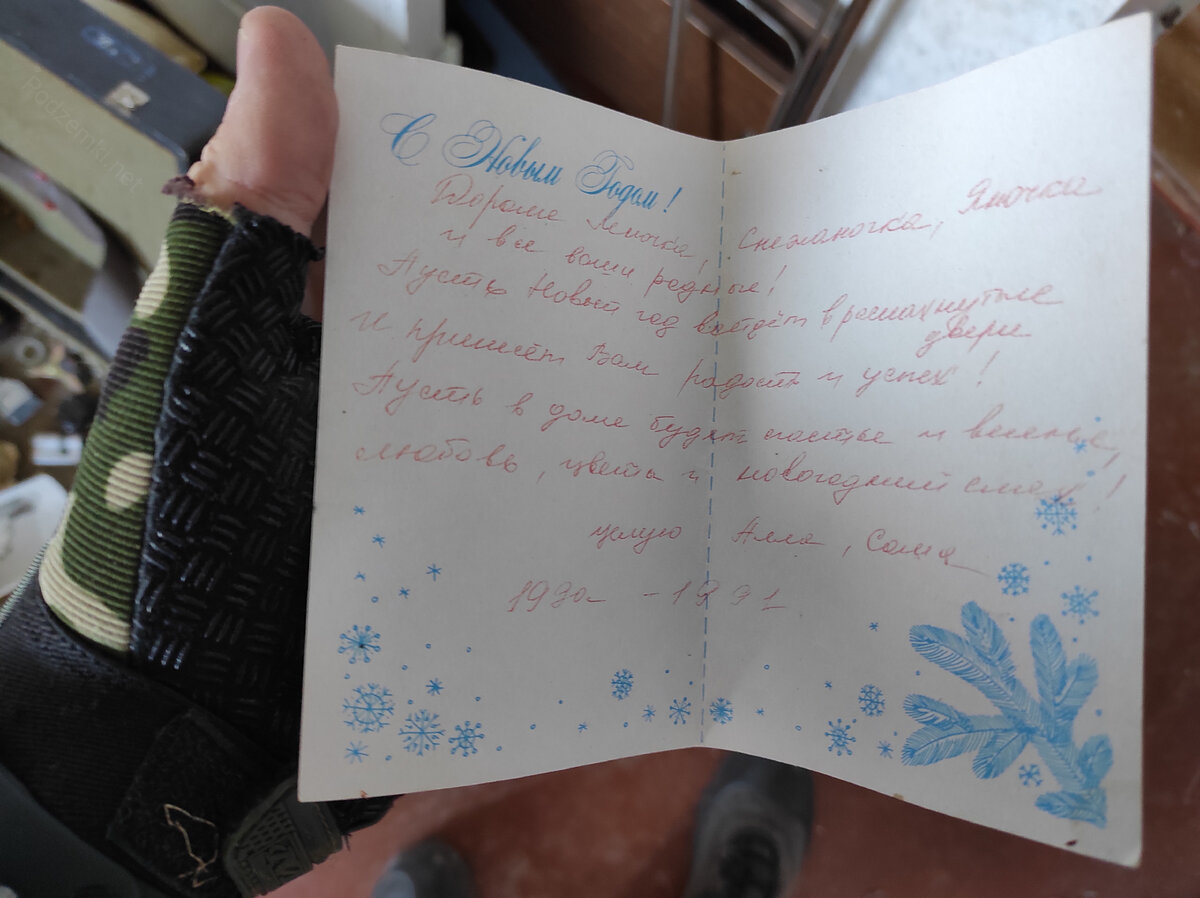 С Новым Годом!
Дорогие Леночка, Снежаночка, Яночка
и все ваши родные!
Пусть Новый год войдёт в распахнутые
двери
и принесёт Вам радость и успех!
Пусть в доме будет счастье и веселье,
любовь, цветы и новогодний смех!
целую Алла, Саша
1990 - 1991
Podzemki.net